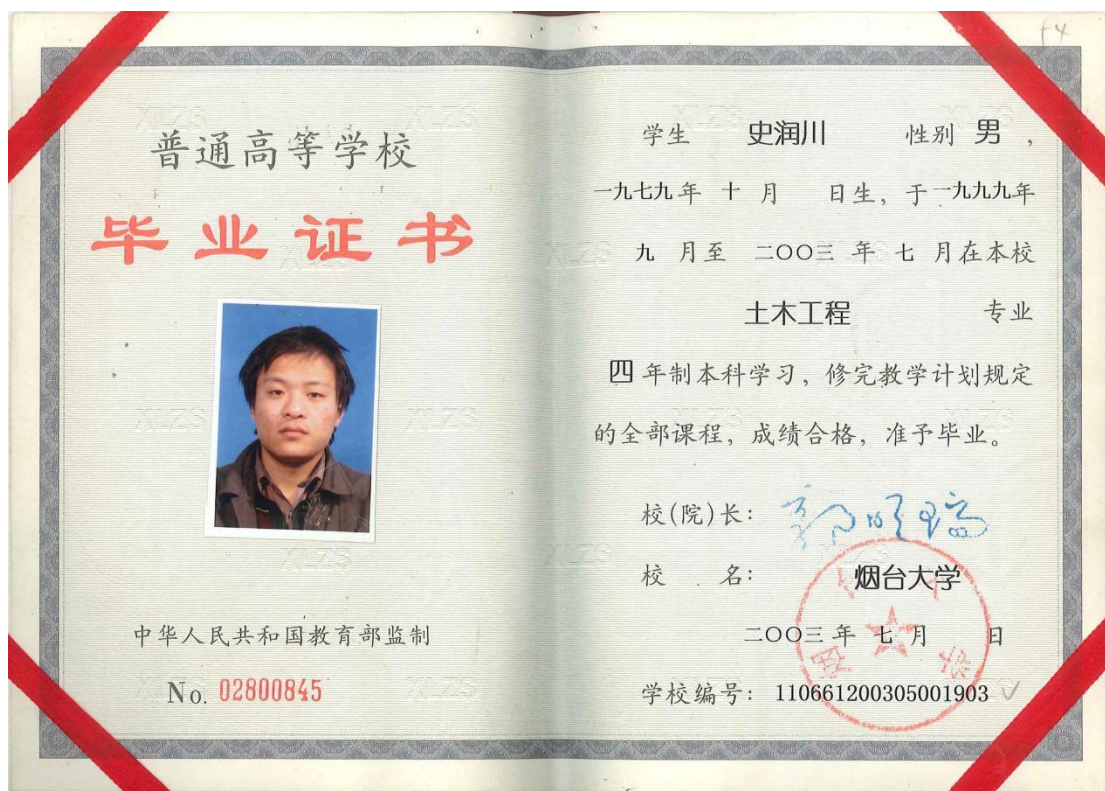 普通高等学校
毕业证书
中华人民共和国教育部监制
No. 02800845
学生 史润川 性别 男 ,
一九七九年 十 月 日生, 于 一九九九年
九 月至 二〇〇三 年 七 月在本校
土木工程 专业
四 年制本科学习, 修完教学计划规定
的全部课程, 成绩合格, 准予毕业。
校(院)长:
校 名: 烟台大学
二〇〇三 年 七 月 日
学校编号: 110661200305001903
烟台大学
XLZS